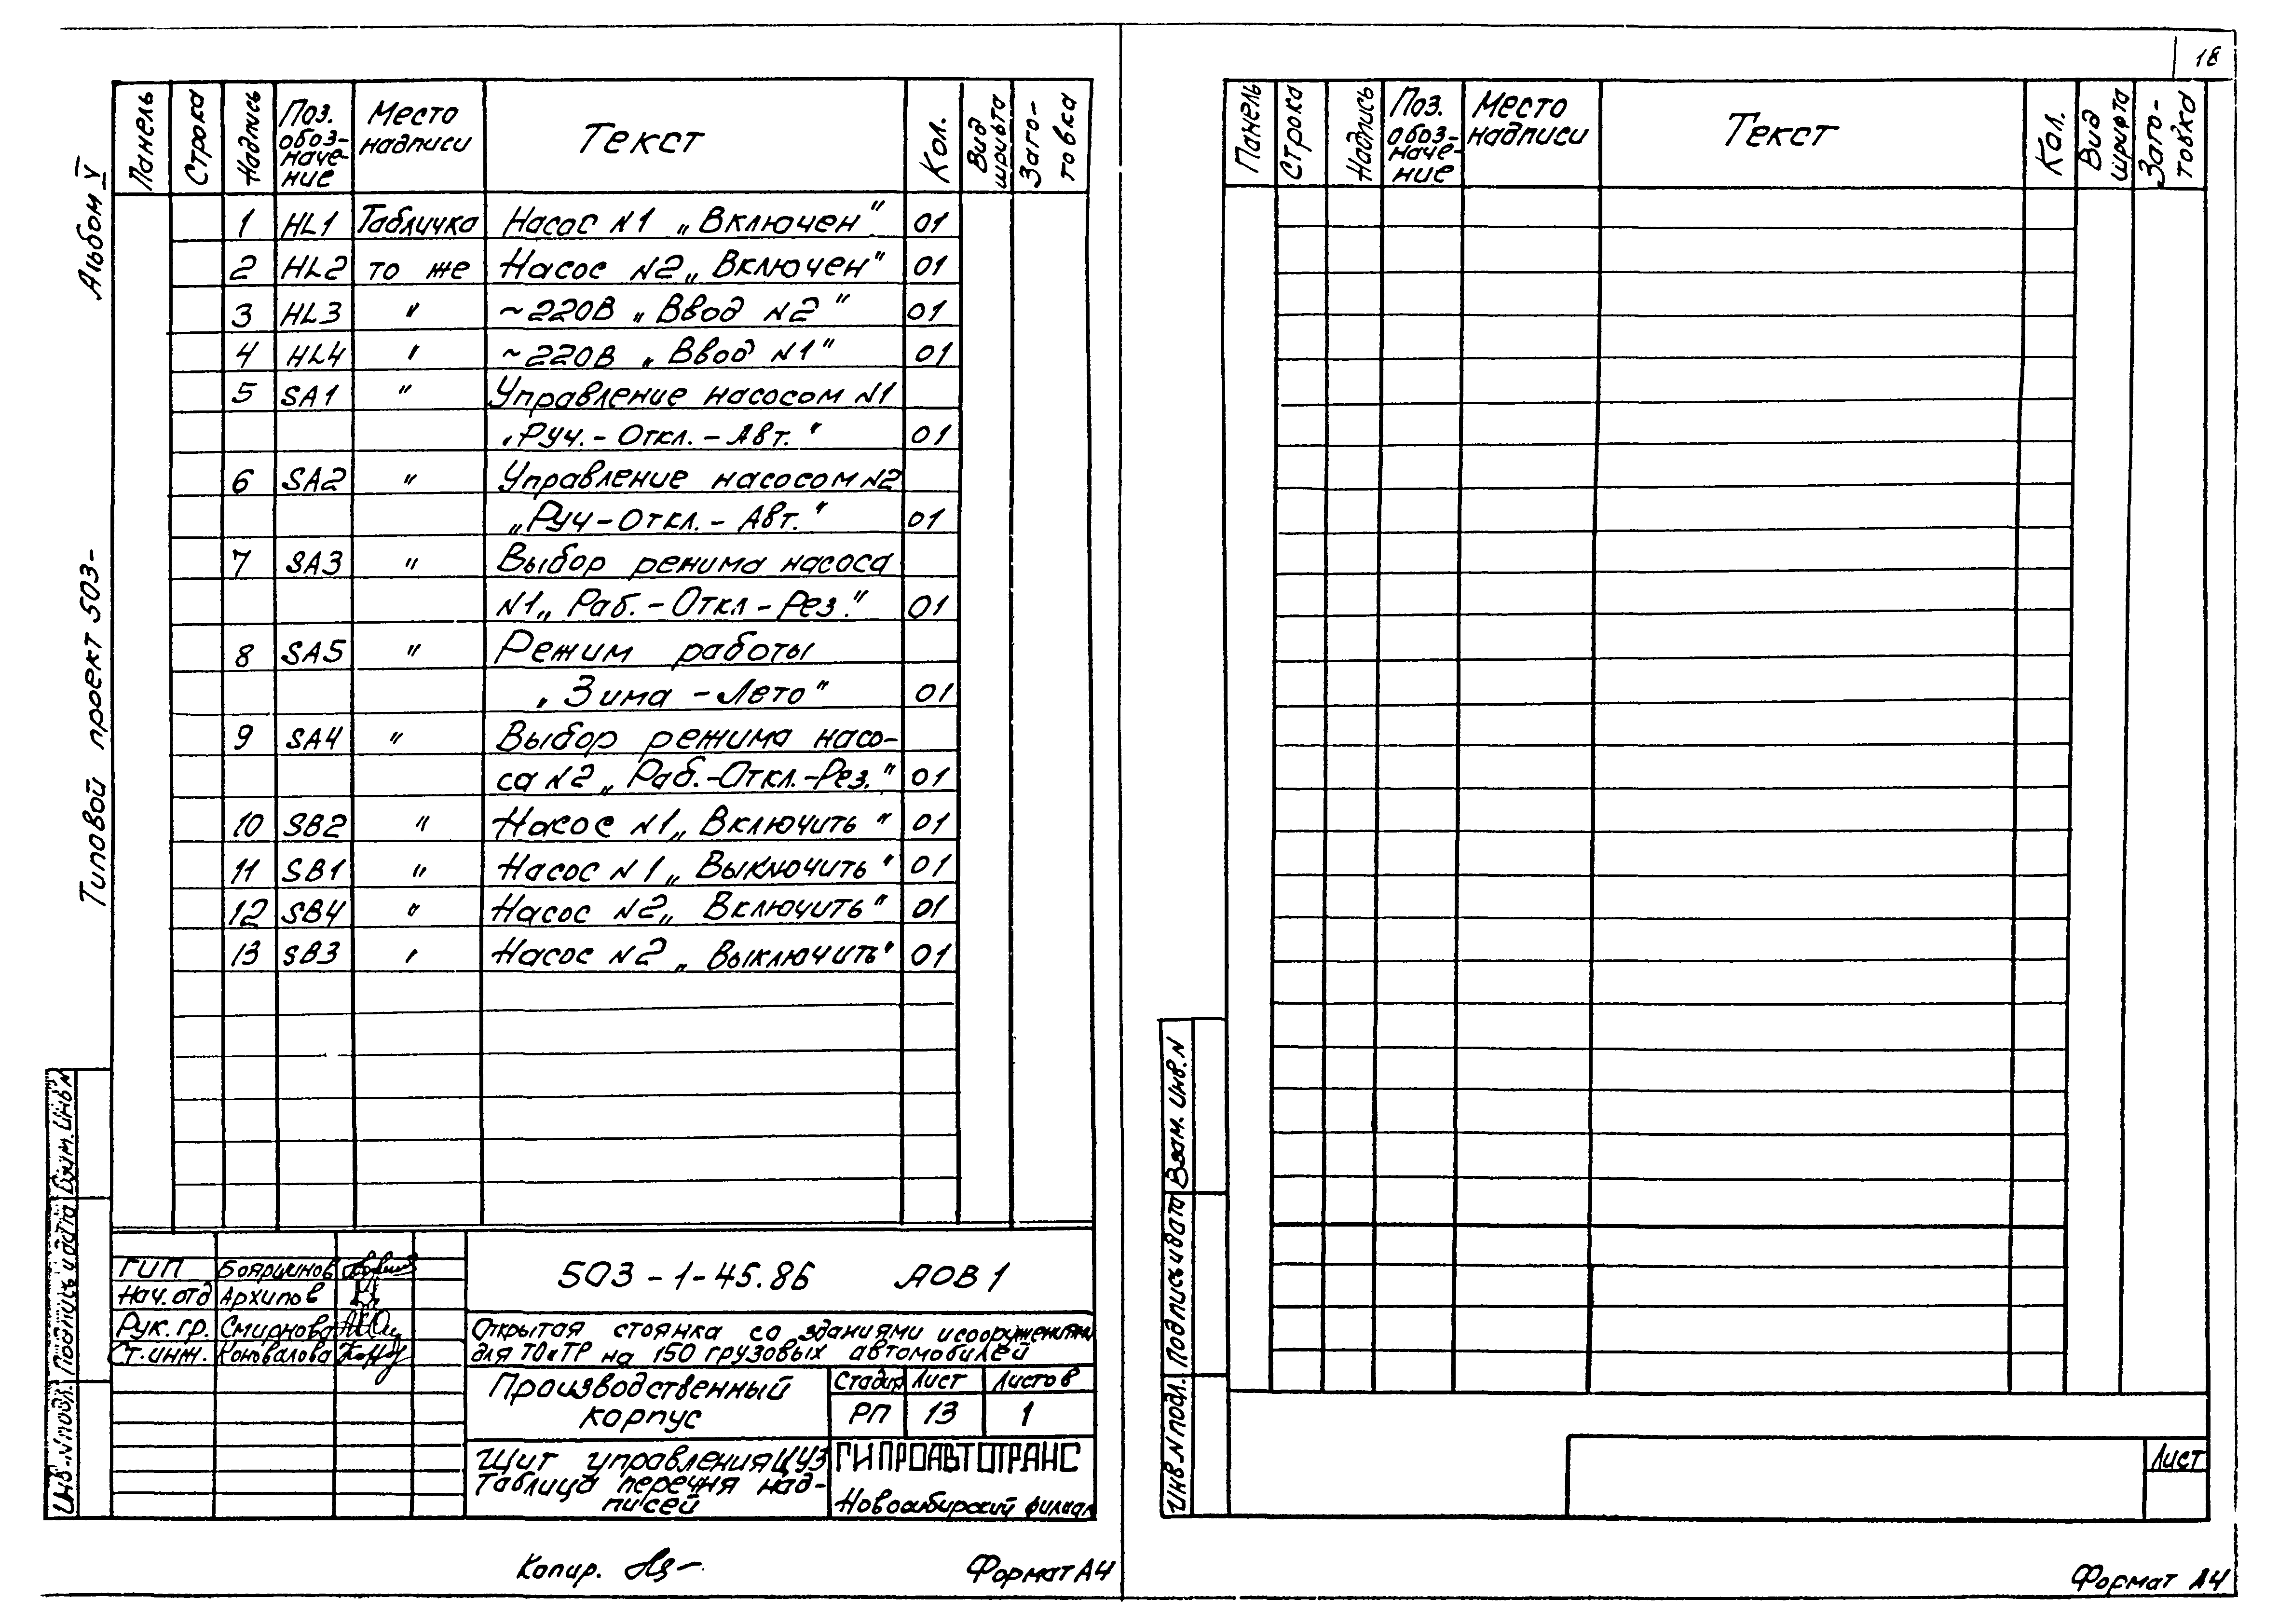 18
Альбом V
Типовой проект 503-
Панель Строка Надпись Поз. обоз- наче- ние Место надписи Текст Кол. Вид шрифта Заго- товка
1 HL1 Табличка Насос N1 „Включен“. 01
2 HL2 то же Насос N2 „Включен“ 01
3 HL3 " ~220В „Ввод N2“ 01
4 HL4 " ~220В „Ввод N1“ 01
5 SA1 " Управление насосом N1
„Руч.-Откл.-Авт.“ 01
6 SA2 " Управление насосом N2
„Руч-Откл.-Авт.“ 01
7 SA3 " Выбор режима насоса
N1 „Раб.-Откл-Рез.“ 01
8 SA5 " Режим работы
„Зима-Лето“ 01
9 SA4 " Выбор режима насо-
са N2 „Раб.-Откл.-Рез.“ 01
10 SB2 " Насос N1 „Включить“ 01
11 SB1 " Насос N1 „Выключить“ 01
12 SB4 " Насос N2 „Включить“ 01
13 SB3 " Насос N2 „Выключить“ 01
Взам. Инв N
Подпись и дата
Инв. N подл.
ГИП Бояршинов
Нач. отд Архипов
Рук. гр. Смирнова
Ст. инж. Коновалова
503-1-45.86 АОВ1
Открытая стоянка со зданиями и сооружениями
для ТО и ТР на 150 грузовых автомобилей
Производственный
корпус
Стадия Лист Листов
РП 13 1
Щит управления ЩУЗ
Таблица перечня над-
писей
ГИПРОАВТОТРАНС
Новосибирский филиал
Копир.
Формат А4
Панель Строка Надпись Поз. обоз- наче- ние Место надписи Текст Кол. Вид шрифта Заго- товка
Взам. инв. N
Подпись и дата
Инв N подл.
Лист
Формат А4